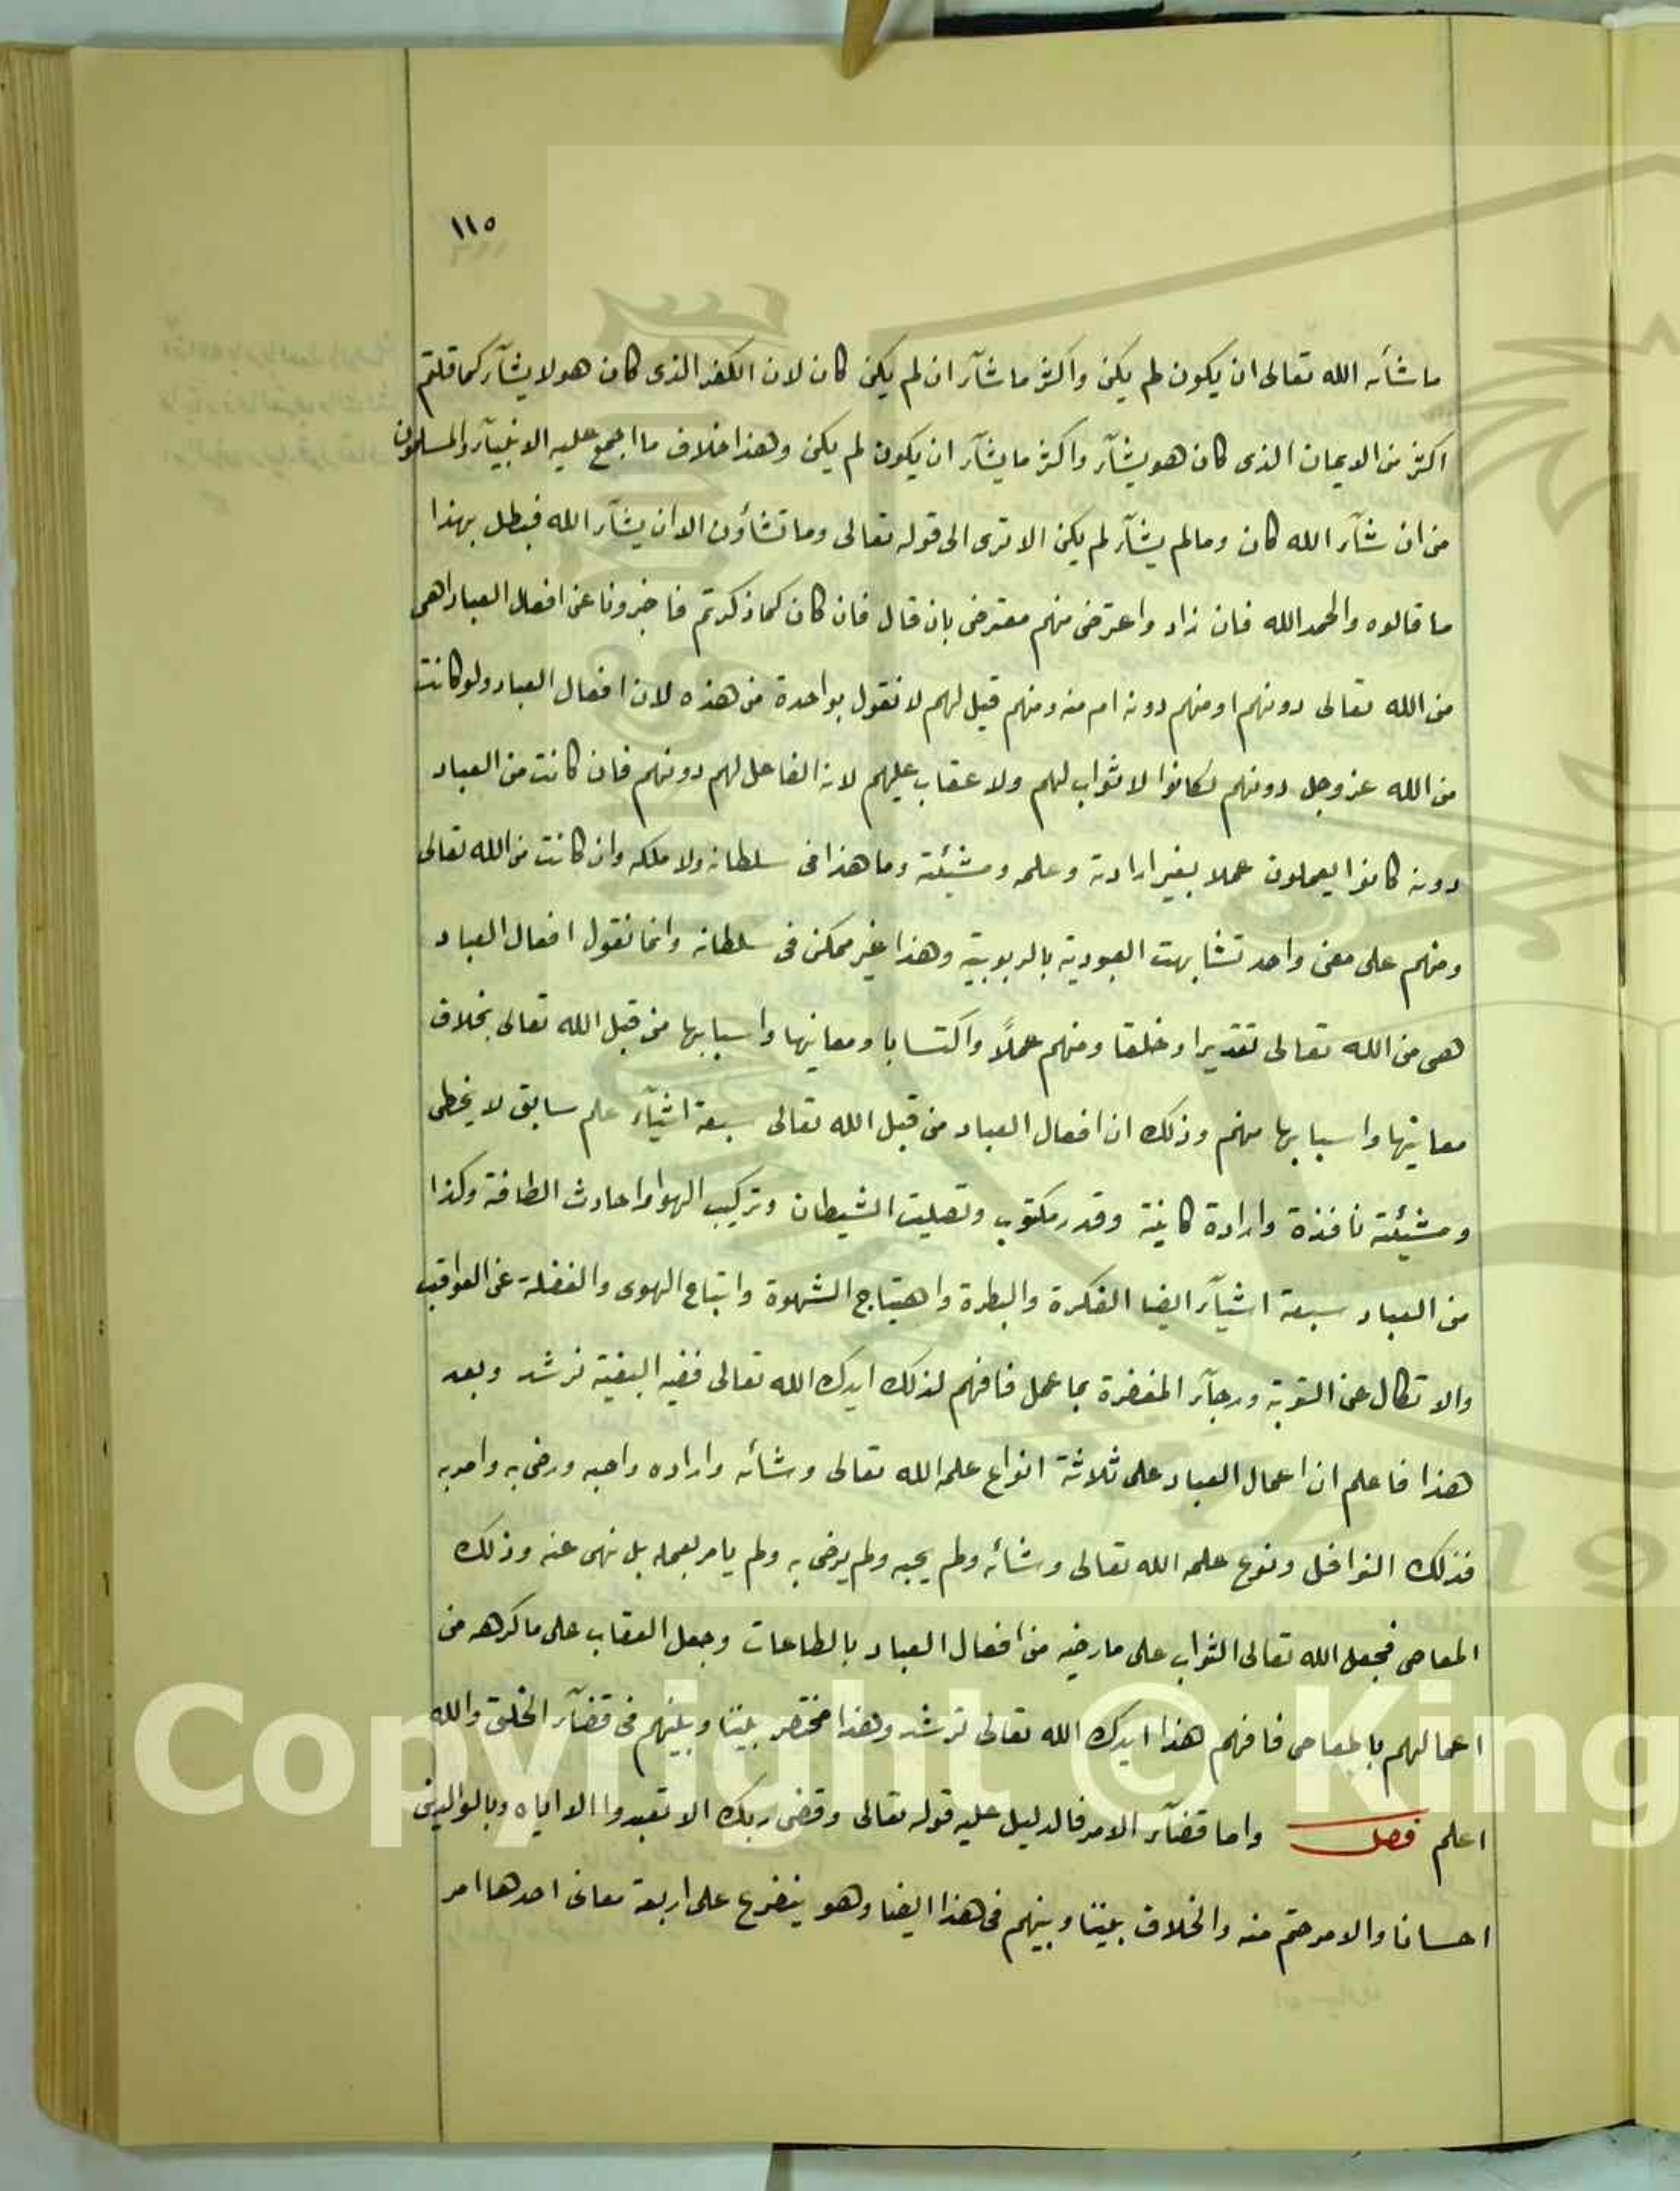 ١١٥
ما شأنه الله تعالى ان يكون لم يكن واكثر ما شآء ان لم يكن كان لان الكفر الذى كان هو لا يشآء كما قلتم
اكثر من الايمان الذى كان هو يشآء واكثر ما يشآء ان يكون لم يكن وهذا خلاف ما اجمع عليه الانبيآء والمسلمون
من ان شآء الله كان وما لم يشآء لم يكن الا ترى الى قوله تعالى وما تشاؤن الا ان يشآء الله فبطل بهذا
ما قالوه والحمد الله فان زاد واعترض منهم معترض بان قال فان كان كما ذكرتم فاخبرونا عن افعال العباد اهى
من الله تعالى دونهم او منهم دونه ام منه ومنهم قيل لهم لا نقول بواحدة من هذه لان افعال العباد ولو كانت
من الله عز وجل دونهم لكانوا لا ثواب لهم ولا عقاب عليهم لانه الفاعل لهم دونهم فان كانت من العباد
دونه كانوا يعملون عملا بغير ارادته وعلمه ومشيئته وما هذا فى سلطانه ولا ملكه وان كانت من الله تعالى
ومنهم على معنى واحد تشابهت العبودية بالربوبية وهذا غير ممكن فى سلطانه وانما نقول افعال العباد
هى من الله تعالى تقديرا وخلقا ومنهم عملاً واكتسابا ومعانيها واسبابها من قبل الله تعالى بخلاف
معانيها واسبابها منهم وذلك ان افعال العباد من قبل الله تعالى سبعة اشيآء علم سابق لا يخطى
ومشيئة نافذة وارادة كائنة وقدر مكتوب وتصليت الشيطان وتركيب الهوا واحادث الطاقة وكذا
من العباد سبعة اشيآء ايضا الفكرة والبطرة واهتياج الشهوة واتباع الهوى والغفلة عن العواقب
والاتكال عن التوبة ورجآء المغفرة بما عمل فافهم لذلك ايدك الله تعالى ففيه البغية ترشد وبعد
هذا فاعلم ان اعمال العباد على ثلاثة انواع علمه الله تعالى وشأنه واراده واحبه ورضى به وامر به
فذلك النوافل ونوع علمه الله تعالى وشائه ولم يحبه ولم يرضى به ولم يامر بعمله بل نهى عنه وذلك
المعاصى فجعل الله تعالى الثواب على ما رضيه من افعال العباد بالطاعات وجعل العقاب على ما كرهه من
اعمالهم بالمعاصى فافهم هذا ايدك الله تعالى ترشد وهذا مختصر بيننا وبينهم فى قضآء الخلق والله
اعلم فصل واما قضآء الامر فالدليل عليه قوله تعالى وقضى ربك الا تعبدوا الا اياه وبالوالدين
احسانا والامر حتم منه والخلاف بيننا وبينهم فى هذا ايضا وهو يتفرع على اربعة معانى احدها امر
Copyright © King